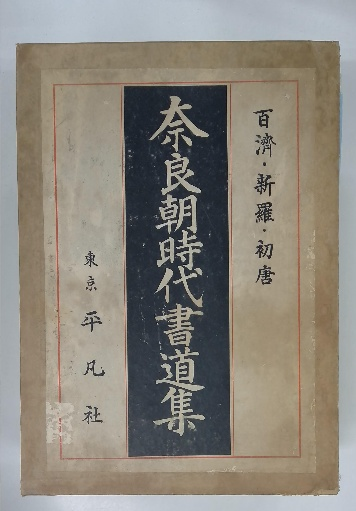 百濟・新羅・初唐
奈良朝時代書道集
東京 平凡社